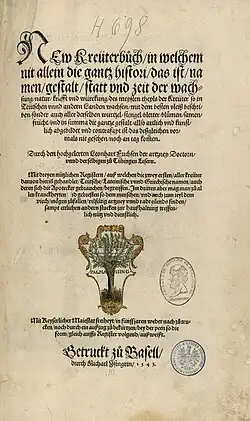 H 698
New Kreüterbuch/ in welchem
nit allein die gantz histori/ das ist/ na-
men/ gestalt/ statt vnd zeit der wach-
sung/ natur/ krafft vnd würckung/ des meysten theyls der Kreüter so in
Teütschen vnnd andern Landen wachsen/ mit dem besten vleiß beschri-
ben/ sonder auch aller derselben wurtzel/ stengel/ bletter/ blůmen/ samen/
frücht/ vnd in summa die gantze gestalt/ allso artlich vnd kunst-
lich abgebildet vnd contrafayt ist/ das deßgleichen vor-
mals nie gesehen/ noch an tag kom̃en.
Durch den hochgelerten Leonhart Fuchsen der artzney Doctorn/
vnnd derselbigen zů Tübingen Lesern.
Mit
Registern/ auß welchen die zwey ersten/ aller kreüter
darvon hierin gehandlet/ Teütsche/ Lateinische vnnd Griechische namen/ auch
deren sich die Apotecker gebrauchen/ begreiffen. Im dritten aber mag man zů al-
len kranckheyten/
dem menschen/ vnd auch zum theyl dem
viech/ mögen zůfallen/
artzney vnnd radt
finden/
sampt etlichen andern stucken zur haußhaltung treffen-
lich nütz vnd dienstlich.
PALMA ISING
Mit Keyserlicher Maiestat freyheit/ in fünff jaren weder nach zů tru-
cken/ noch durch ein außzug zů bekürtzen/ bey der peen so die
form/ gleich auffs Register volgend/ außweist.
Getruckt zů Basell/
durch Michael Isingrin/ 1543.